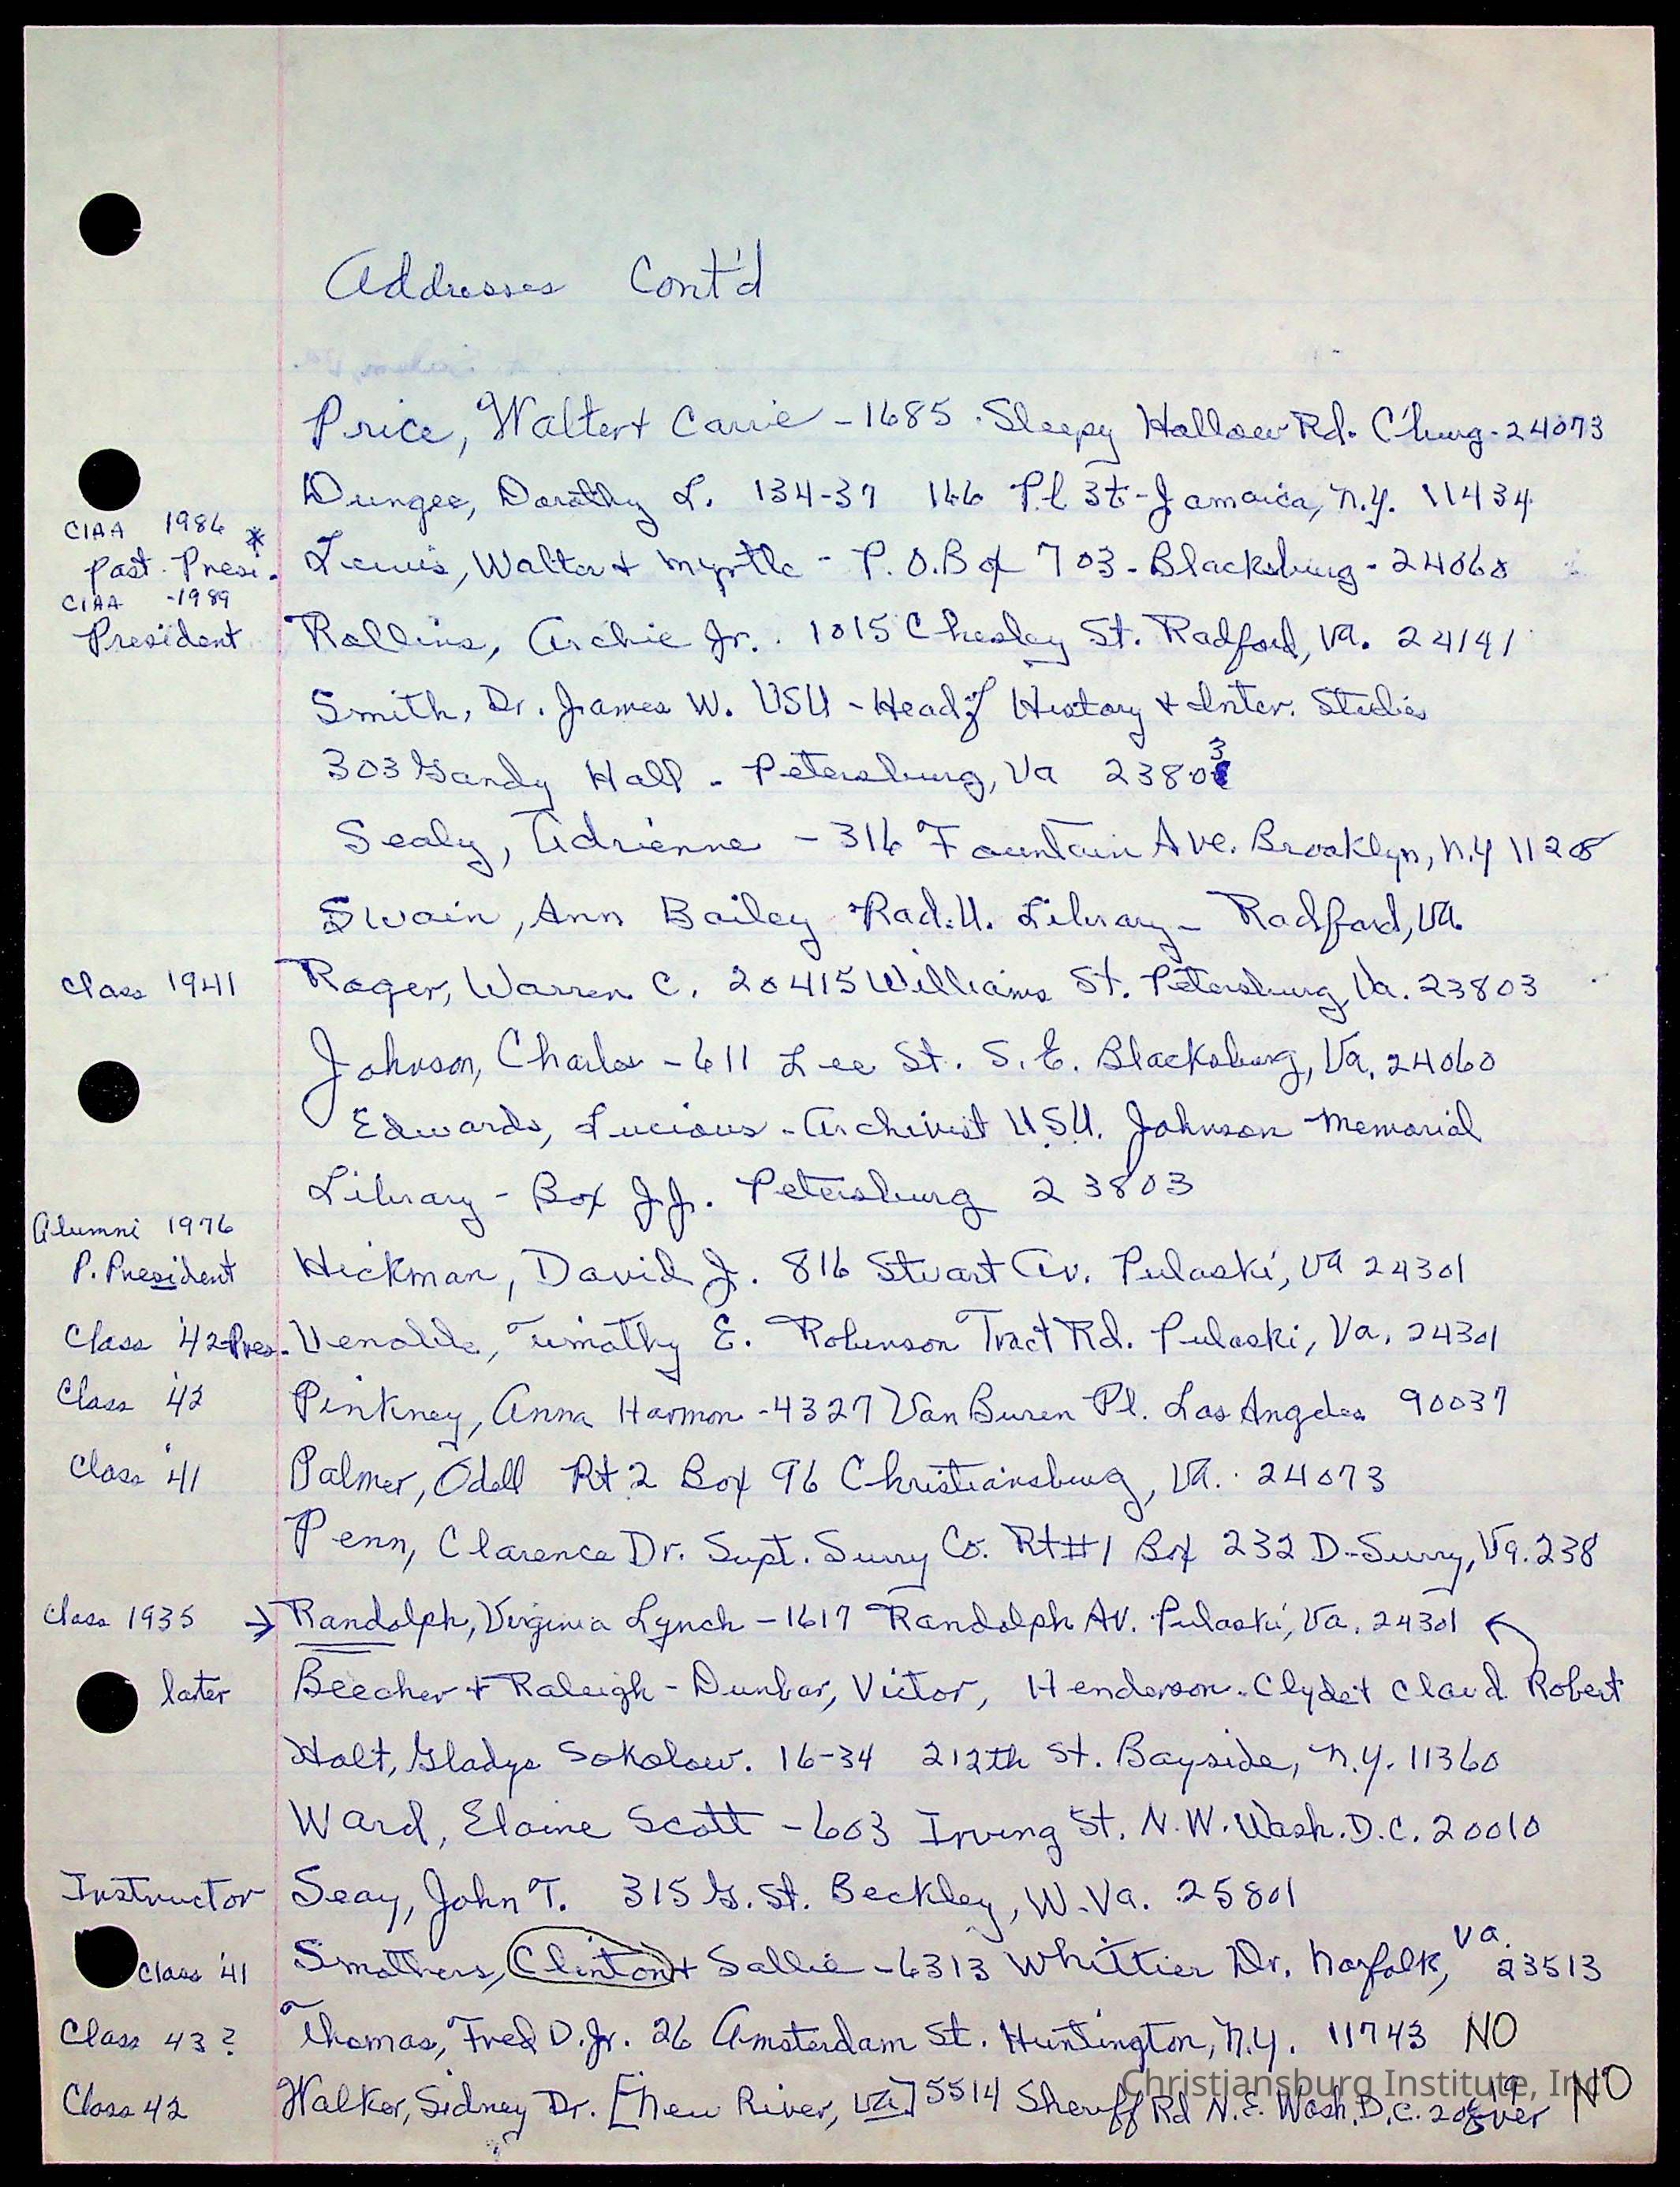 Addresses Cont'd
Price, Walter + Carrie - 1685 Sleepy Hollow Rd. C'burg - 24073
Dungee, Dorothy L. 134-37 166 Pl St - Jamaica, N.Y. 11434
CIAA 1986 *
past Presi. Lewis, Walter + Myrtle - P.O. Box 703 - Blacksburg - 24060
CIAA - 1989
President Rollins, Archie Jr. 1015 Chesley St. Radford, Va. 24141
Smith, Dr. James W. VSU - Head of History & Inter. Studies
303 Gandy Hall - Petersburg, Va 23803
Sealy, Adrienne - 316 Fountain Ave. Brooklyn, N.Y 11208
Swain, Ann Bailey Rad. U. Library - Radford, Va.
Class 1941 Roger, Warren C. 20415 Williams St. Petersburg, Va. 23803
Johnson, Charles - 611 Lee St. S.E. Blacksburg, Va. 24060
Edwards, Lucious - Archivist VSU. Johnson Memorial
Library - Box J.J. Petersburg 23803
Alumni 1976
P. President Hickman, David J. 816 Stuart Av. Pulaski, Va 24301
Class '42 Pres. Venable, Timothy E. Robinson Tract Rd. Pulaski, Va. 24301
Class '42 Pinkney, Anna Harmon - 4327 Van Buren Pl. Los Angeles 90037
Class '41 Palmer, Odell Rt 2 Box 96 Christiansburg, Va. 24073
Penn, Clarence Dr. Supt. Surry Co. Rt #1 Box 232 D - Surry, Va. 238
Class 1935 → Randolph, Virginia Lynch - 1617 Randolph Av. Pulaski, Va. 24301
later Beecher + Raleigh - Dunbar, Victor, Henderson - Clyde + Claud Robert
Holt, Gladys Sokolow. 16-34 212th St. Bayside, N.Y. 11360
Ward, Elaine Scott - 603 Irving St. N.W. Wash. D.C. 20010
Instructor Seay, John T. 315 G. St. Beckley, W. Va. 25801
Class '41 Smothers, Clinton + Sallie - 6313 Whittier Dr. Norfolk, Va. 23513
Class 43? Thomas, Fred D. Jr. 26 Amsterdam St. Huntington, N.Y. 11743 NO
Class 42 Walker, Sidney Dr. [New River, Va] 5514 Sheriff Rd N.E. Wash. D.C. 20019 NO
over
Christiansburg Institute, Inc.